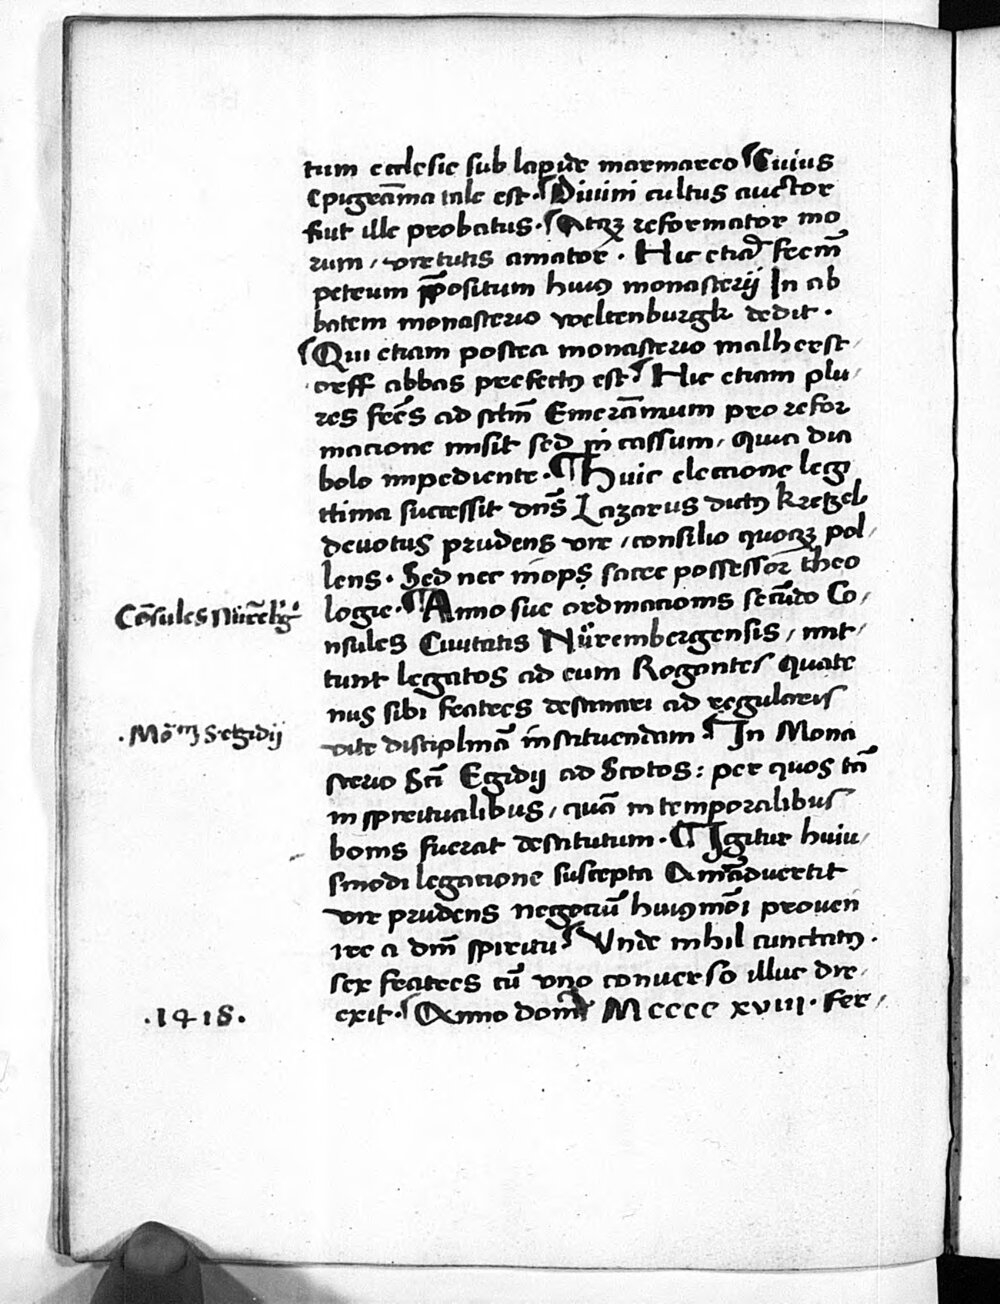 tum ecclesie sub lapide marmareo ¶ Cuius
Epigra͞ma tale est · ¶ Diuini cultus auctor
fiut ille probatus · ¶ Atqꝫ reformator mo
rum / virtutis amator · Hic etia͞ fr͞em
petrum p͞positum huiꝰ monasterij In ab
batem monasterio weltenburgk dedit ·
¶ Qui etiam postea monasterio malherst /
orff abbas prefectꝰ est ¶ Hic etiam plu /
res fr͞es ad s͞tm Emera͞mum pro refor
macione misit sed in cassum / quia dia
bolo impediente · ¶ Huic eleccione legi
ttima successit dn͞s Lazarus dictꝰ kretzel
deuotus prudens vir / consilio quoqꝫ pol /
lens · Sed nec inops sacre possessor theo
Co͞sules Nure͞b͞g
logie · ¶ Anno sue ordinacionis secu͞do Co /
nsules Ciuitatis Nürembergensis / mit /
tunt legatos ad eum Rogantes quate
nus sibi fratres destinari ad regularis
· Mo͞m S Egidij
vite disciplina͞ instituendam ¶ In Mona
sterio S͞ci Egidij ad Scotos : per quos ta͞
in spiritualibus / qua͞ in temporalibus
bonis fuerat destitutum · ¶ Igitur huiu /
smodi legacione suscepta Anima͞duertit
vir prudens negociu͞ huiꝰmo͞i prouen
ire a dn͞i spiritu ¶ Vnde nihil cunctatꝰ ·
sex fratres cu͞ vno conuerso illuc dir /
· 1418 ·
exit · ¶ Anno domi͞ Mcccc xviii · Fer /